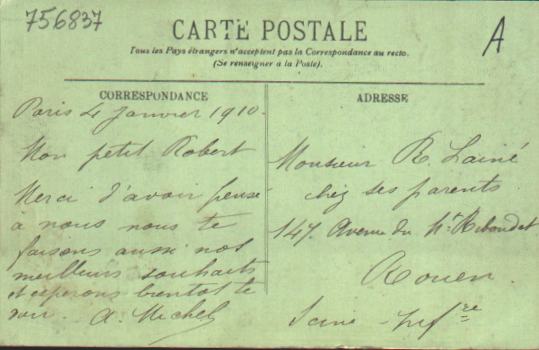 756837
A
CARTE POSTALE
Tous les Pays étrangers n'acceptent pas la Correspondance au recto.
(Se renseigner à la Poste).
CORRESPONDANCE
Paris 4 Janvier 1910.
Mon petit Robert
Merci d'avoir pensé
à nous nous te
faisons aussi nos
meilleurs souhaits
et esperons bientot te
voir. A. Michel
ADRESSE
Monsieur R. Lainé
chez ses parents
147. Avenue du Mt Riboudet
Rouen
Seine - Infre